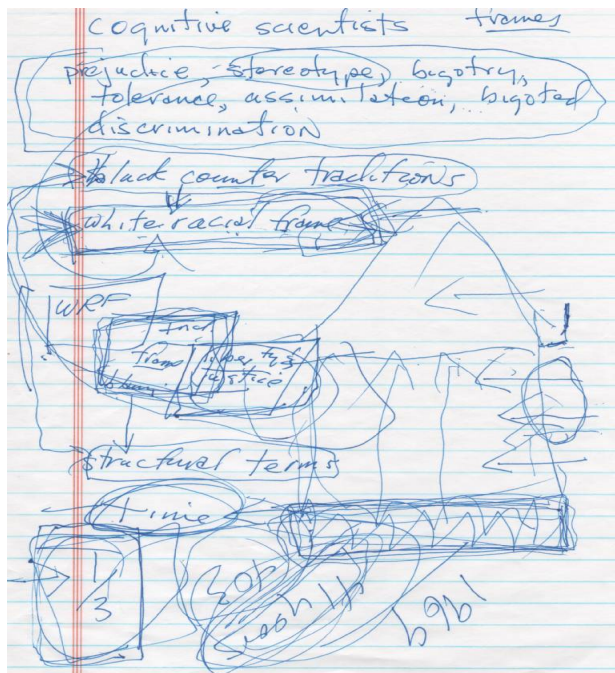 cognitive scientists frames
prejudice, stereotype, bigotry,
tolerance, assimilation, bigoted
discrimination
black counter traditions
white racial frame
WRF
frame liberty &
justice
structural terms
time
1/3
1969